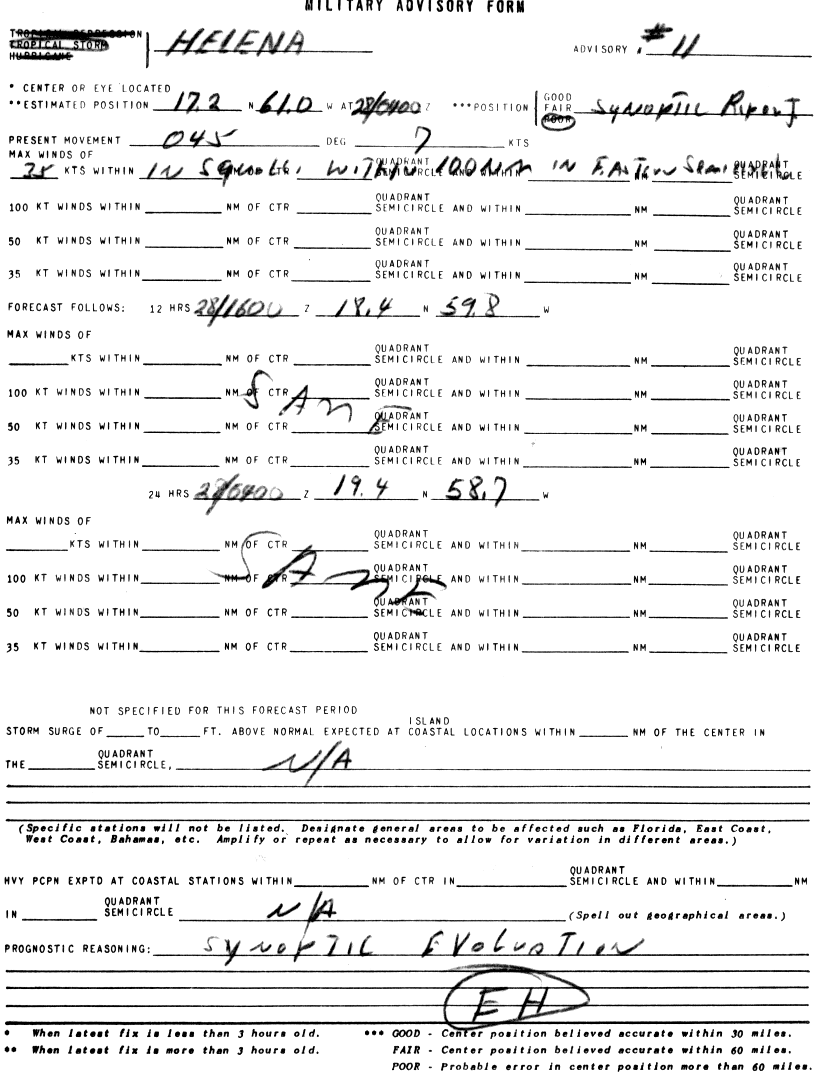 MILITARY ADVISORY FORM
TROPICAL DEPRESSION
TROPICAL STORM HELENA ADVISORY #11
HURRICANE
* CENTER OR EYE LOCATED
**ESTIMATED POSITION 17.2 N 61.0 W AT 28/0400 Z ***POSITION GOOD FAIR POOR SYNOPTIC REPORT
PRESENT MOVEMENT 045 DEG 7 KTS
MAX WINDS OF
35 KTS WITHIN IN SQUALLS WITHIN 100 NM IN EASTERN SEMICIRCLE QUADRANT SEMICIRCLE AND WITHIN NM QUADRANT SEMICIRCLE
100 KT WINDS WITHIN NM OF CTR QUADRANT SEMICIRCLE AND WITHIN NM QUADRANT SEMICIRCLE
50 KT WINDS WITHIN NM OF CTR QUADRANT SEMICIRCLE AND WITHIN NM QUADRANT SEMICIRCLE
35 KT WINDS WITHIN NM OF CTR QUADRANT SEMICIRCLE AND WITHIN NM QUADRANT SEMICIRCLE
FORECAST FOLLOWS: 12 HRS 28/1600 Z 18.4 N 59.8 W
MAX WINDS OF
KTS WITHIN NM OF CTR QUADRANT SEMICIRCLE AND WITHIN NM QUADRANT SEMICIRCLE
100 KT WINDS WITHIN NM OF CTR QUADRANT SEMICIRCLE AND WITHIN NM QUADRANT SEMICIRCLE
SAME
50 KT WINDS WITHIN NM OF CTR QUADRANT SEMICIRCLE AND WITHIN NM QUADRANT SEMICIRCLE
35 KT WINDS WITHIN NM OF CTR QUADRANT SEMICIRCLE AND WITHIN NM QUADRANT SEMICIRCLE
24 HRS 28/0400 Z 19.4 N 58.7 W
MAX WINDS OF
KTS WITHIN NM OF CTR QUADRANT SEMICIRCLE AND WITHIN NM QUADRANT SEMICIRCLE
100 KT WINDS WITHIN NM OF CTR QUADRANT SEMICIRCLE AND WITHIN NM QUADRANT SEMICIRCLE
SAME
50 KT WINDS WITHIN NM OF CTR QUADRANT SEMICIRCLE AND WITHIN NM QUADRANT SEMICIRCLE
35 KT WINDS WITHIN NM OF CTR QUADRANT SEMICIRCLE AND WITHIN NM QUADRANT SEMICIRCLE
NOT SPECIFIED FOR THIS FORECAST PERIOD
ISLAND
STORM SURGE OF TO FT. ABOVE NORMAL EXPECTED AT COASTAL LOCATIONS WITHIN NM OF THE CENTER IN
THE QUADRANT SEMICIRCLE, N/A
(Specific stations will not be listed. Designate general areas to be affected such as Florida, East Coast,
West Coast, Bahamas, etc. Amplify or repeat as necessary to allow for variation in different areas.)
HVY PCPN EXPTD AT COASTAL STATIONS WITHIN NM OF CTR IN QUADRANT SEMICIRCLE AND WITHIN NM
IN QUADRANT SEMICIRCLE N/A (Spell out geographical areas.)
PROGNOSTIC REASONING: SYNOPTIC EVALUATION
EH
* When latest fix is less than 3 hours old. *** GOOD - Center position believed accurate within 30 miles.
** When latest fix is more than 3 hours old. FAIR - Center position believed accurate within 60 miles.
POOR - Probable error in center position more than 60 miles.